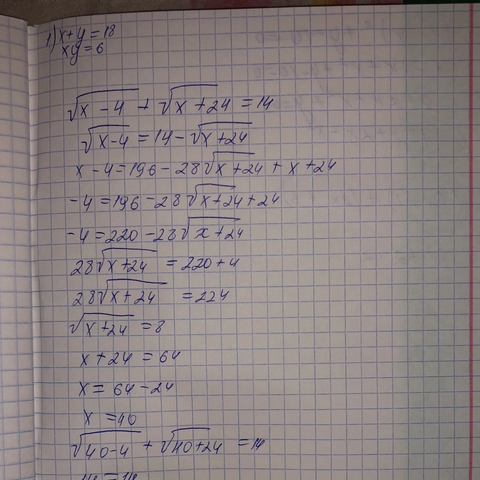 1) x+y=18
xy=6
√(x-4) + √(x+24) =14
√(x-4) =14-√(x+24)
x-4=196-28√(x+24) + x+24
-4=196-28√(x+24)+24
-4=220-28√(x+24)
28√(x+24) =220+4
28√(x+24) =224
√(x+24) =8
x+24=64
x=64-24
x=40
√(40-4) + √(40+24) =14
14=14